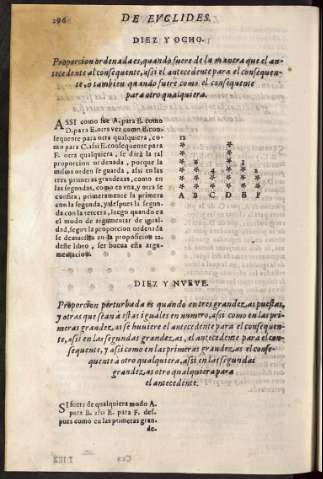 296
DE EVCLIDES.
DIEZ Y OCHO.
Proporcion ordenada es, quando fuere de la manera que el an-
tecedente al consequente, assi el antecedente para el consequen-
te, o tambien quando fuere como el consequente
para otro qualquiera.
ASSI como fue A. para B. como
D. para E. otra vez como B. con-
sequente para otra qualquiera, co-
mo para C. assi E. consequente para
F. otra qualquiera, se dirá la tal
proporcion ordenada, porque la
misma orden se guarda, assi en las
tres primeras grandezas, como en
las segundas, como en vna, y otra se
consista, primeramente la primera
con la segunda, y despues la segun-
da con la tercera, luego quando en
el modo de argumentar de iguali-
dad, segun la proporcion ordenada
se demuestra en la proposicion
deste libro, ser buena esta argu-
mentacion.
A B C D E F
DIEZ Y NVEVE.
Proporcion perturbada es quando en tres grandezas puestas,
y otras que sean à estas iguales en numero, assi como en las pri-
meras grandezas se huviere el antecedente para el consequen-
te, assi en las segundas grandezas, el antecedente para el con-
sequente, y assi como en las primeras grandezas el conse-
quente à otro qualquiera, assi en las segundas
grandezas otro qualquiera para
el antecedente.
SI fuere de qualquiera modo A.
para B. assi E. para F. des-
pues como en las primeras gran-
de.